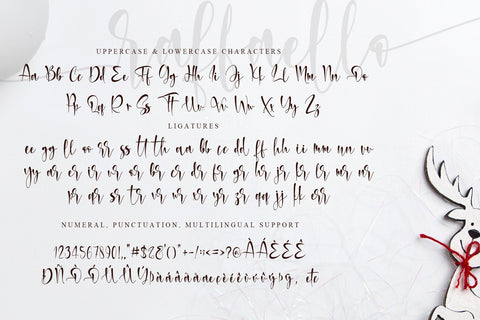 raffaello
UPPERCASE & LOWERCASE CHARACTERS
Aa Bb Cc Dd Ee Ff Gg Hh Ii Jj Kk Ll Mm Nn Oo
Pp Qq Rr Ss Tt Uu Vv Ww Xx Yy Zz
LIGATURES
ee gg ll oo rr ss tt th aa bb cc dd ff hh ii mm nn uu
yy ar er ir or br cr dr fr gr hr ir jr kr lr mr nr
pr qr sr tr ur vr wr xr yr zr qq jj kk err
NUMERAL, PUNCTUATION, MULTILINGUAL SUPPORT
etc